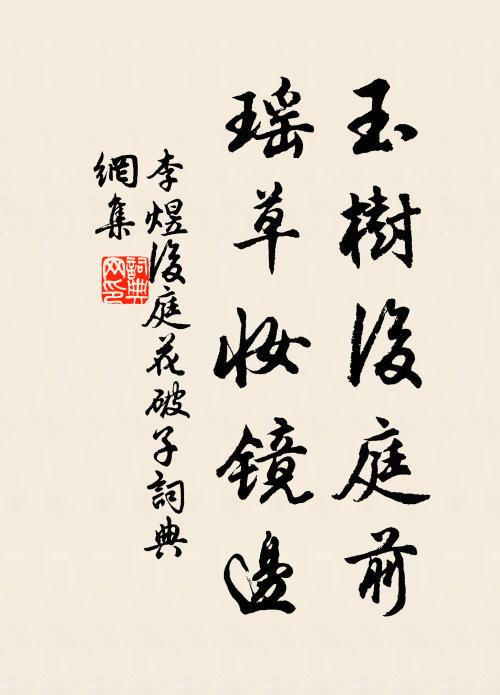 玉樹後庭前
瑶草妝鏡邊
李煜後庭花破子詞典
網集
詞典網印